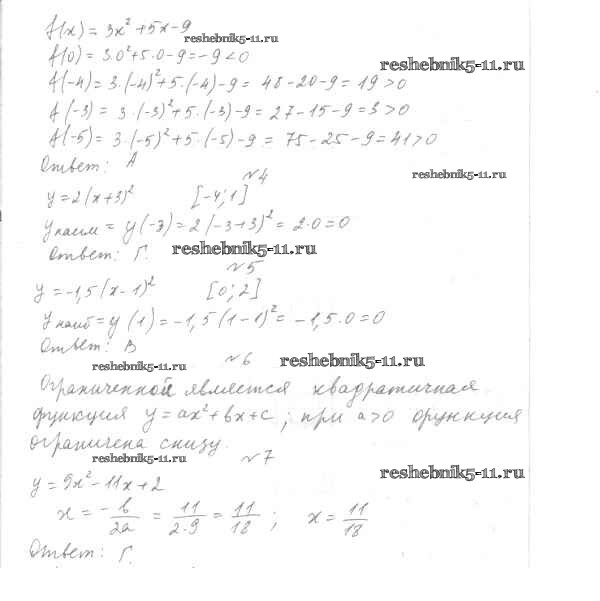 f(x) = 3x² + 5x - 9
reshebnik5-11.ru
f(0) = 3·0² + 5·0 - 9 = -9 < 0
reshebnik5-11.ru
f(-4) = 3·(-4)² + 5·(-4) - 9 = 48 - 20 - 9 = 19 > 0
f(-3) = 3·(-3)² + 5·(-3) - 9 = 27 - 15 - 9 = 3 > 0
f(-5) = 3·(-5)² + 5·(-5) - 9 = 75 - 25 - 9 = 41 > 0
Ответ: А
№4
reshebnik5-11.ru
y = 2(x+3)² [-4; 1]
y наим = y(-3) = 2(-3+3)² = 2·0 = 0
Ответ: Г.
reshebnik5-11.ru
№5
y = -1,5(x-1)² [0; 2]
y наиб = y(1) = -1,5(1-1)² = -1,5·0 = 0
Ответ: В
№6
reshebnik5-11.ru
reshebnik5-11.ru
Ограниченной является квадратичная
функция y = ax² + bx + c; при a > 0 функция
ограничена снизу.
reshebnik5-11.ru
№7
reshebnik5-11.ru
y = 9x² - 11x + 2
x = -b/2a = 11/2·9 = 11/18; x = 11/18
Ответ: Г.